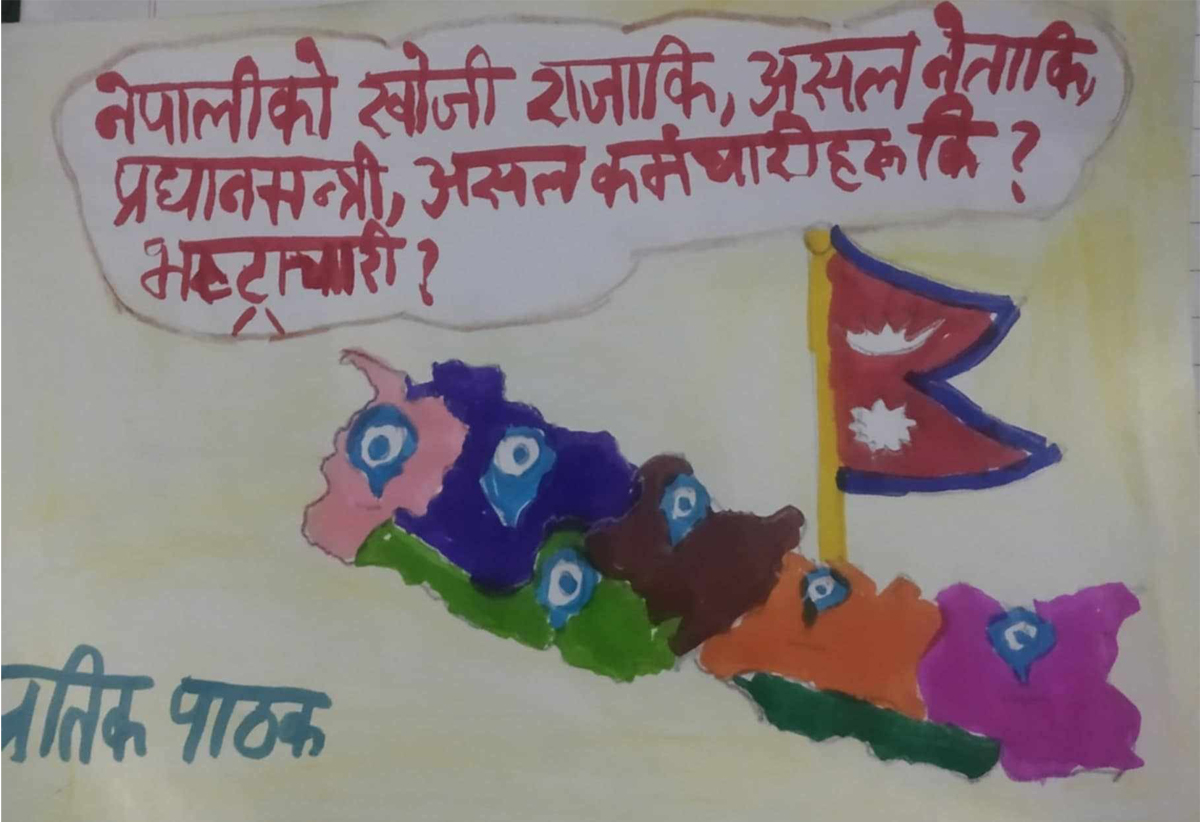 नेपालीको खोजी राजाकि, असल नेताकि,
प्रधानमन्त्री, असल कर्मचारीहरू कि ?
भष्ट्राचारी ?
प्रतिक पाठक